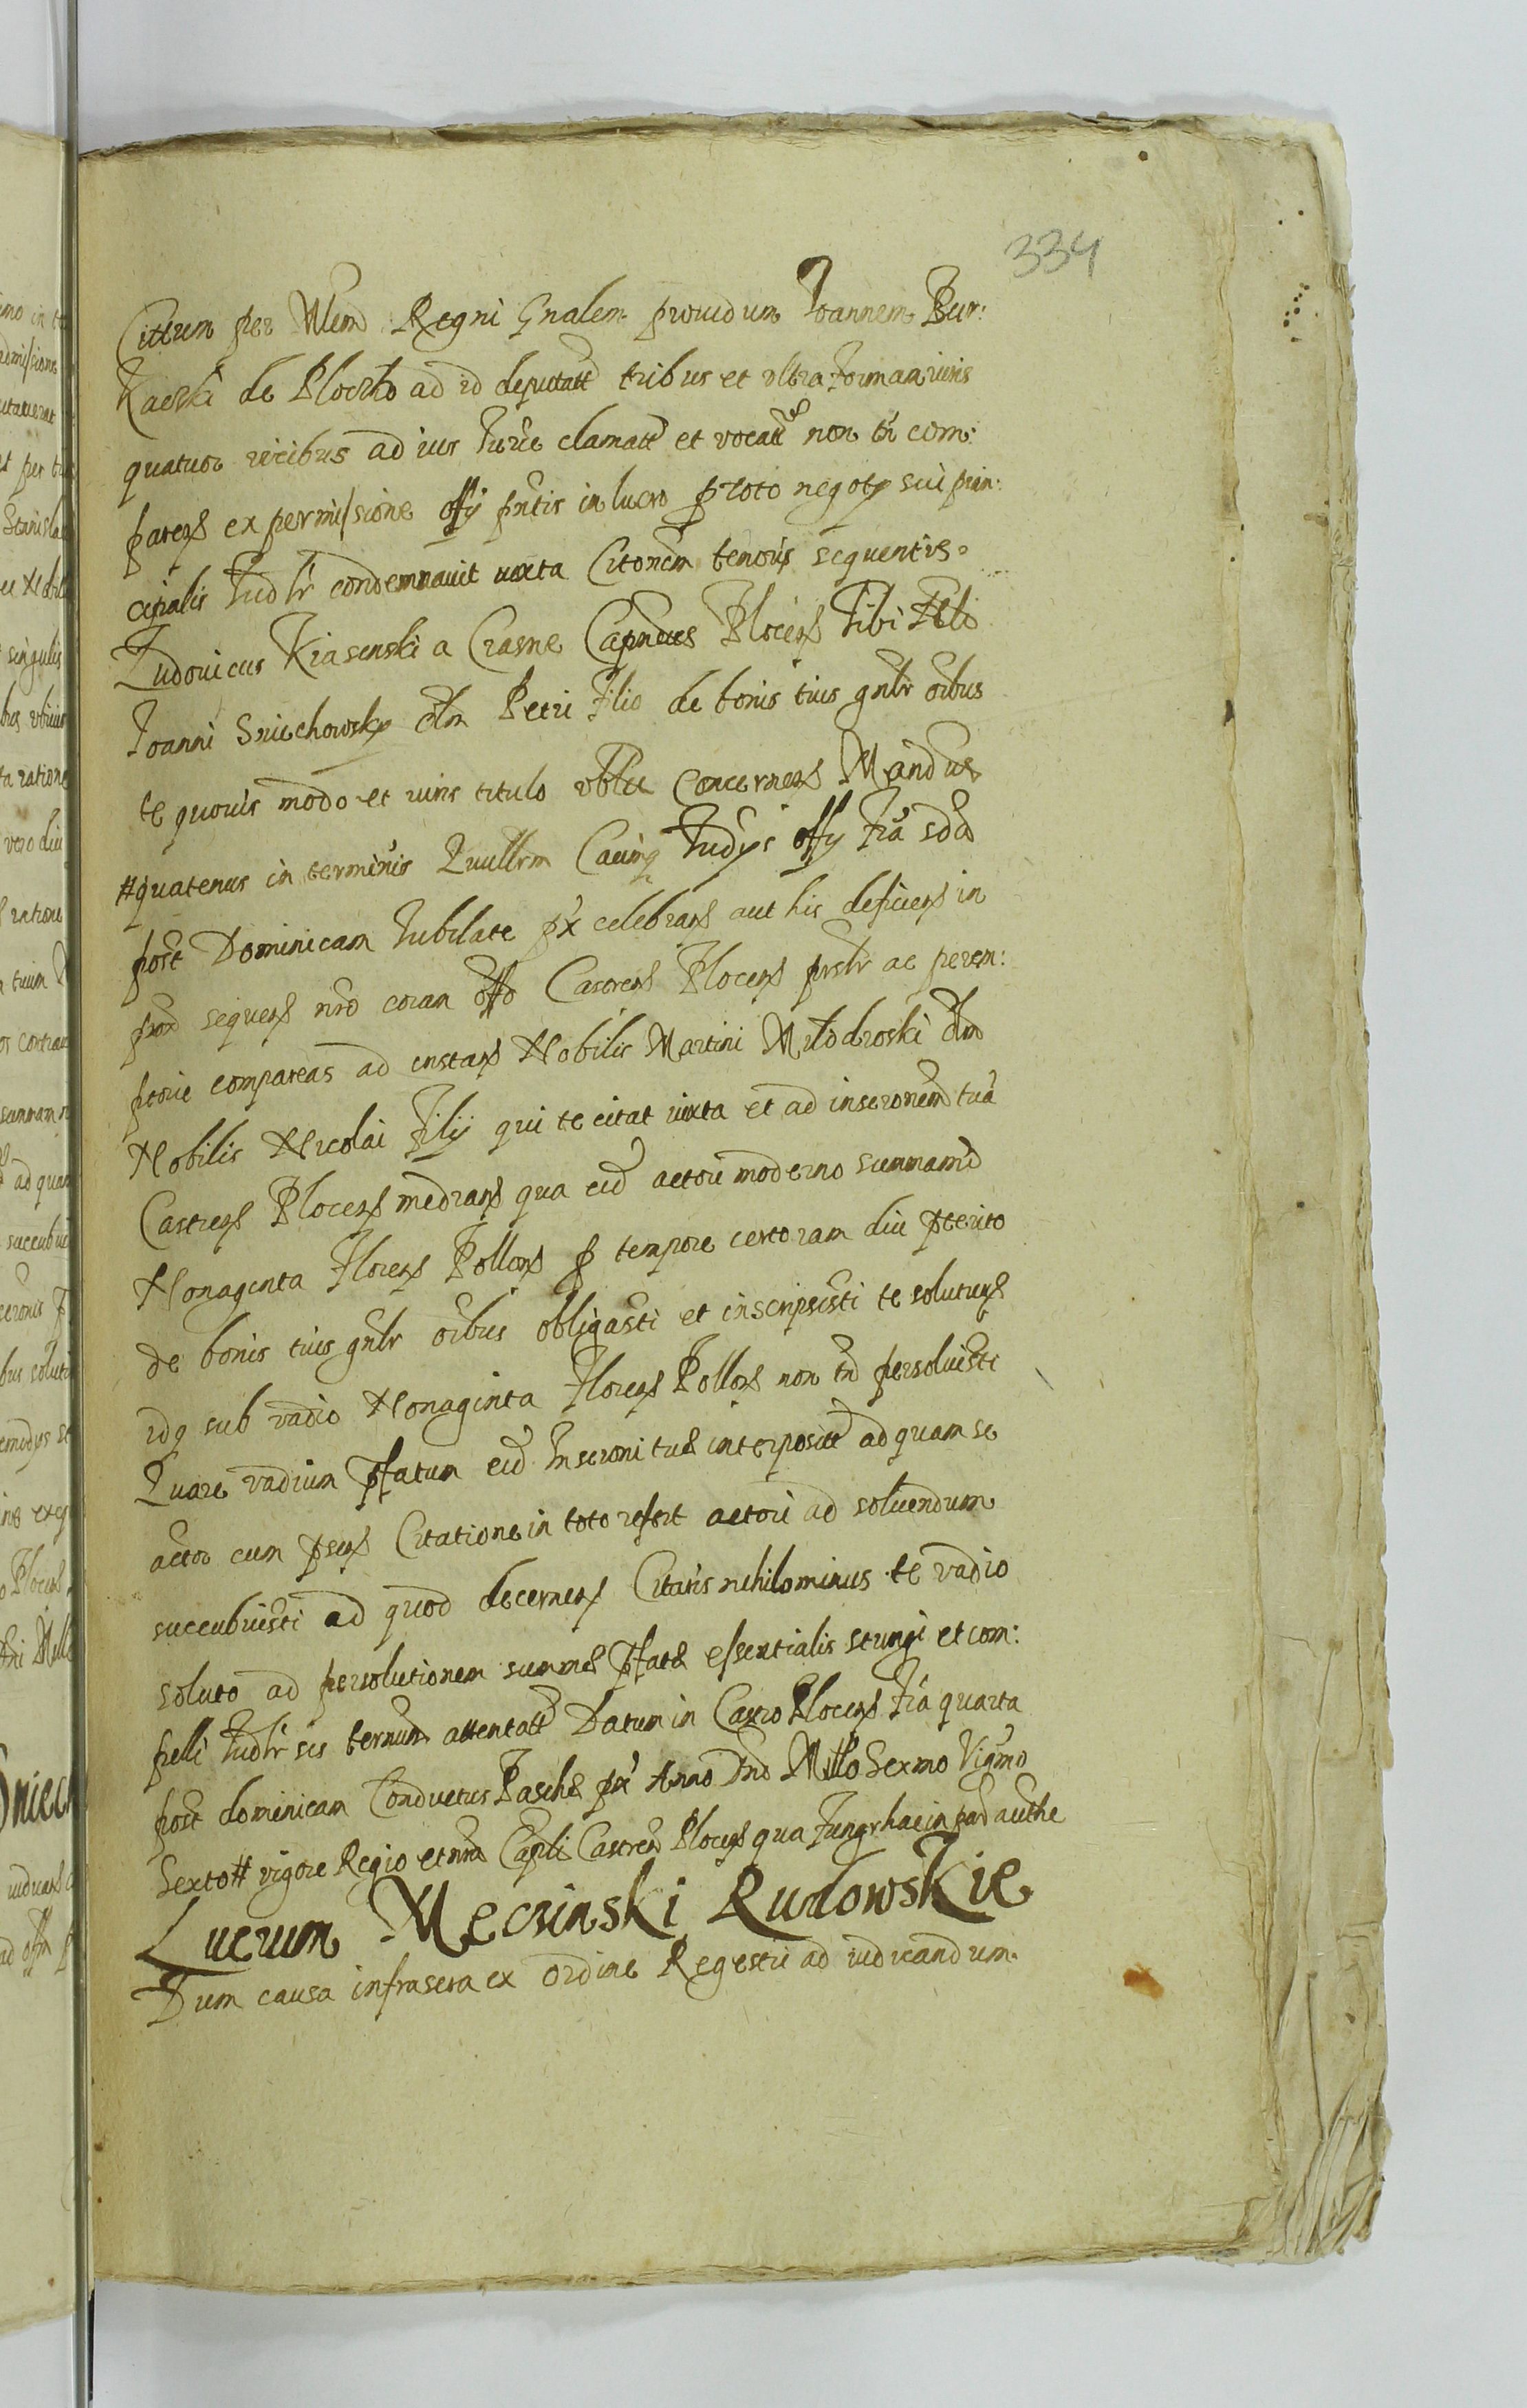 334
Cittum per Mlem Regni Gnalem prouidum Joannem Bur:
kacski de Plocko ad id deputatt tribus et vltra formam iuris
quatuor vicibus ad ius Iure clamatt et vocatt non tn com:
parens ex permissione offy pntis in lucro proto negoty sui prin:
cipalis Iudlr condemnauit iuxta Citonem tenoris sequentis.
Ludouicus Krasenski a Crasne Capneus Plocens Tibi Nbli
Joanni Sniechowsky olm Petri filio de bonis tuis gnlr oibus
te quouis modo et iuris titulo vbilt concernens Mandus
# quatenus in terminis Quullrm Caung Iudys offy fra sda
post Dominicam Iubilate px celebrans aut his deficiens in
prox sequens nro coram offo Castrens Plocens prslr ac perem:
ptorie compareas ad instans Nobilis Martini Milodroski olm
Nobilis Nicolai filij qui te citat iuxta et ad inscronem tua
Castrens Plocens medians qua eid actori moderno summam
Nonaginta florens Pollons p tempore certo iam diu pterito
de bonis tuis gnlr oibus obligasti et inscripsisti te soluturs
idq sub vadio Nonaginta florens Pollons non tn persoluisti
Quare vadium pfatum eid Inscroni tuae interposítt ad quam se
actor cum psens Citatione in toto refert actori ad soluendum
succubuisti ad quod decernens Citaris nihilominus te vadio
soluto ad persolutionem summae pfatae essentialis stringi et com:
pelli Iudlr sis ternum attentatt Datum in Castro Plocens fra quarta
post dominicam Conductus Paschae px Anno Dno Millo Sexmo Vigmo
Sexto # vigore Regio et nro Capli Castren Plocens qua fungr hac in par authe
Lucrum Mecsinski Rudowskie
Dum causa infrascra ex ordine Regestri ad iudicandum.